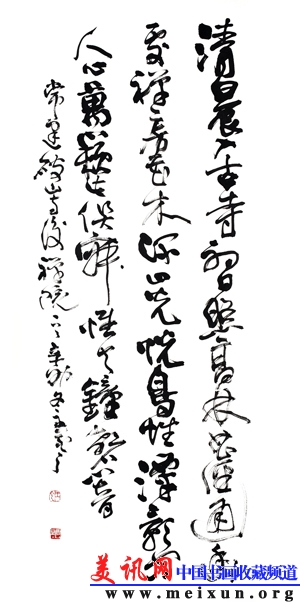 清晨入古寺初日照高林曲徑通幽
處禪房花木深山光悦鳥性潭影空
人心萬籟此俱寂惟聞鐘磬音
常建破山寺後禪院 辛卯冬
美讯网 中国书画收藏频道
www.meixun.org